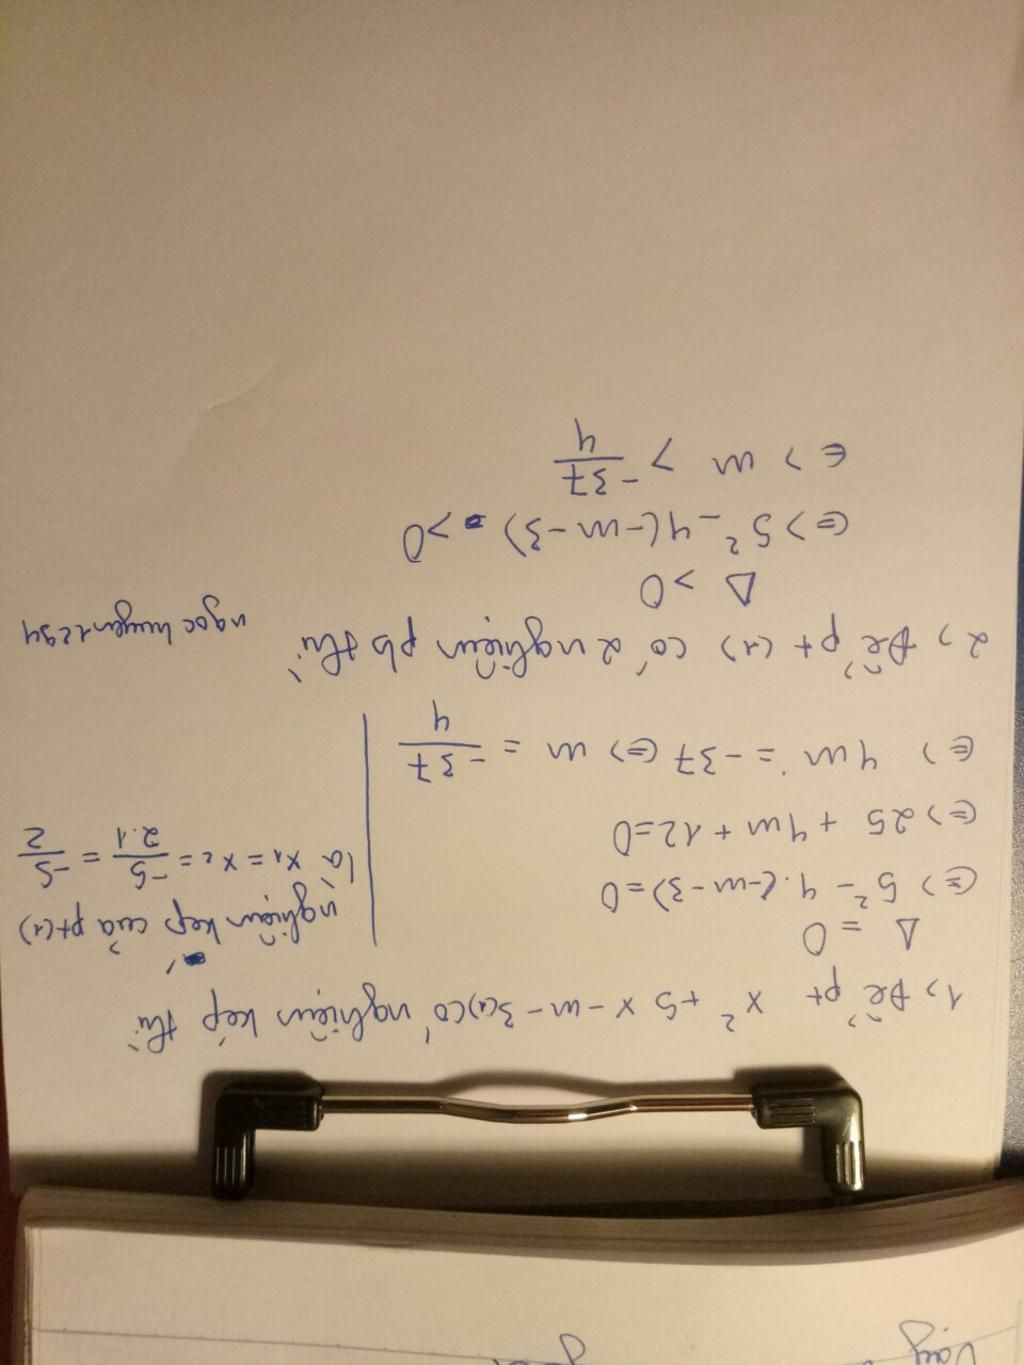 1) Để pt x² + 5x - m - 3 (1) có nghiệm kép thì
Δ = 0
(=) 5² - 4.(-m - 3) = 0
(=) 25 + 4m + 12 = 0
(=) 4m = -37 (=) m = -37/4
nghiệm kép của pt (1)
là x1 = x2 = -5/2.1 = -5/2
2) Để pt (1) có 2 nghiệm pb thì
Δ > 0
(=) 5² - 4(-m - 3) > 0
(=) m > -37/4
ngochuyen1294